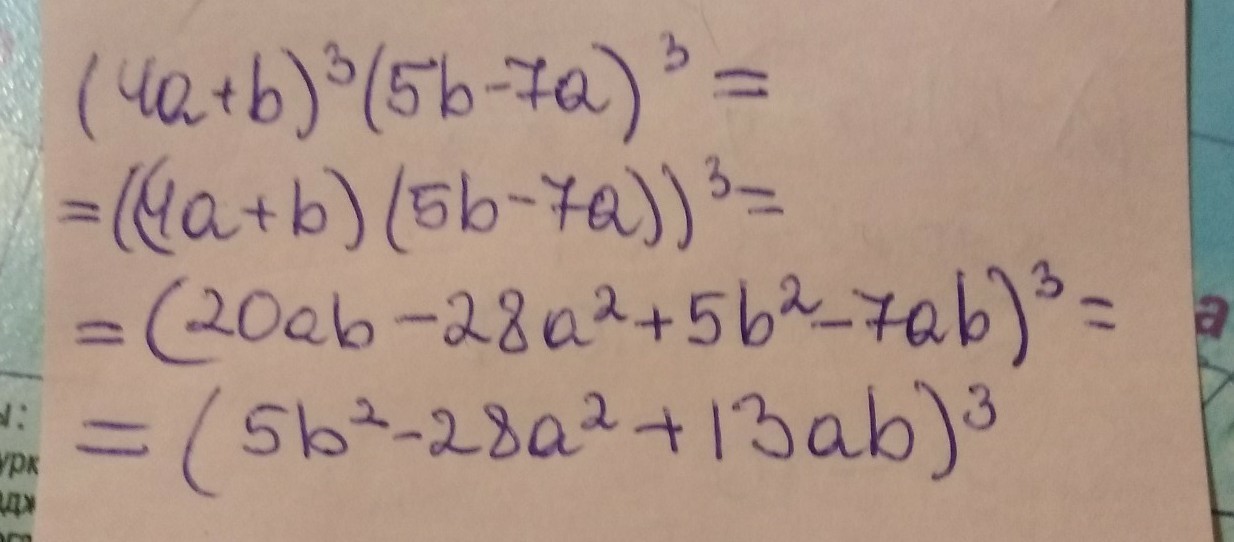 (4a+b)³(5b-7a)³=
=((4a+b)(5b-7a))³=
=(20ab-28a²+5b²-7ab)³=
=(5b²-28a²+13ab)³
а
ы:
урк